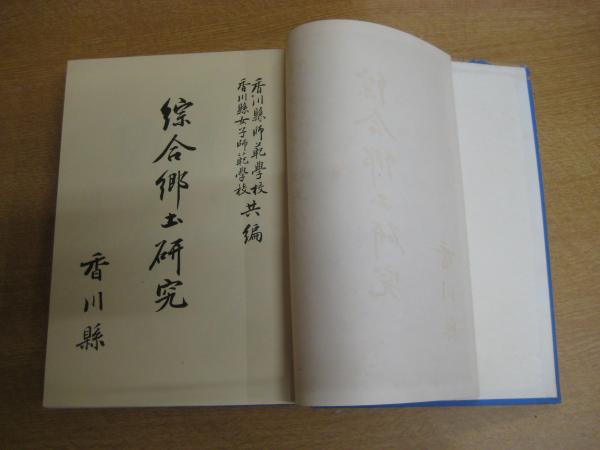 香川縣師範學校
香川縣女子師範學校
共編
綜合鄉土研究
香川縣